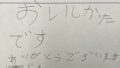 おいしかた
です
ありがとうございます